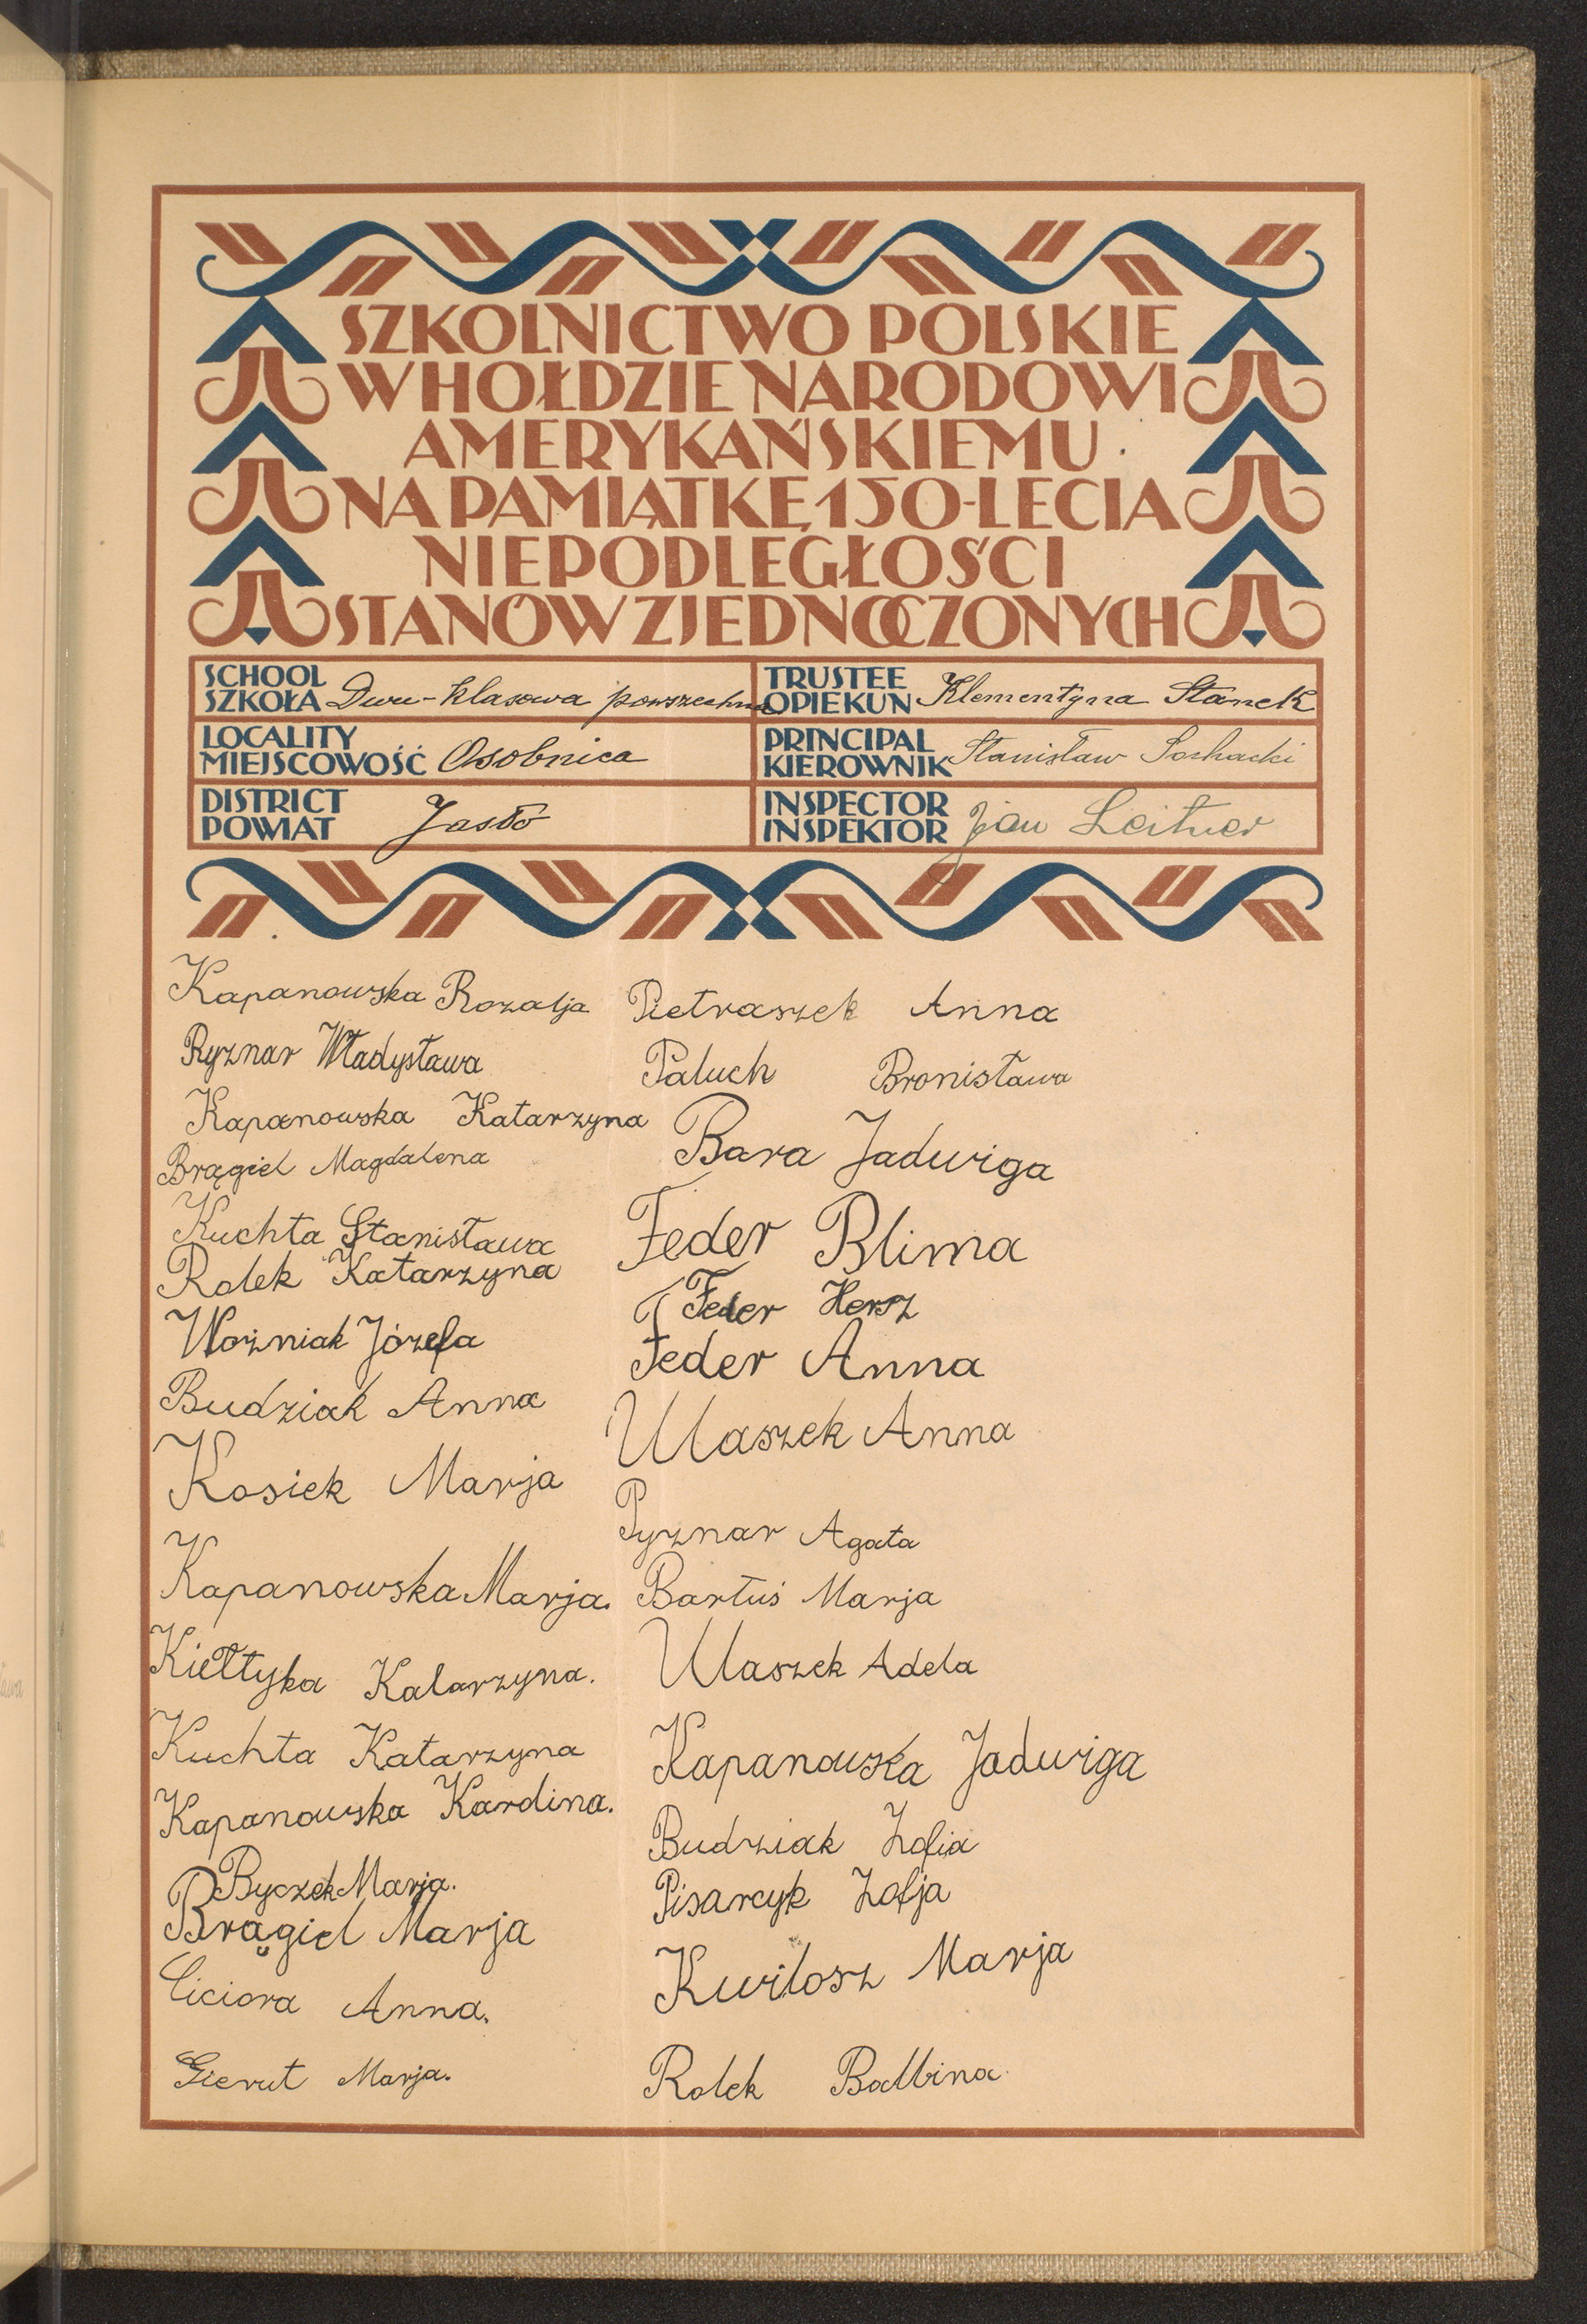 SZKOLNICTWO POLSKIE
W HOŁDZIE NARODOWI
AMERYKAŃSKIEMU
NA PAMIĄTKĘ 150-LECIA
NIEPODLEGŁOŚCI
STANÓW ZJEDNOCZONYCH
SCHOOL
SZKOŁA Dwu-klasowa powszechna
TRUSTEE
OPIEKUN Klementyna Stanek
LOCALITY
MIEJSCOWOŚĆ Osobnica
PRINCIPAL
KIEROWNIK Stanisław Sochacki
DISTRICT
POWIAT Jasło
INSPECTOR
INSPEKTOR Jan Leitner
Kapanowska Rozalja
Ryznar Władysława
Kapanowska Katarzyna
Brągiel Magdalena
Kuchta Stanisława
Rolek Katarzyna
Woźniak Józefa
Budziak Anna
Kosiek Marja
Kapanowska Marja.
Kiełtyka Katarzyna.
Kuchta Katarzyna
Kapanowska Karolina.
Byczek Marja.
Brągiel Marja
Ciciora Anna.
Gierut Marja.
Pietraszek Anna
Paluch Bronisława
Bara Jadwiga
Feder Blima
Feder Hersz
Feder Anna
Ulaszek Anna
Pyznar Agata
Bartuś Marja
Ulaszek Adela
Kapanowska Jadwiga
Budziak Zofia
Pisarcyk Zofja
Kwilosz Marja
Rolek Balbina